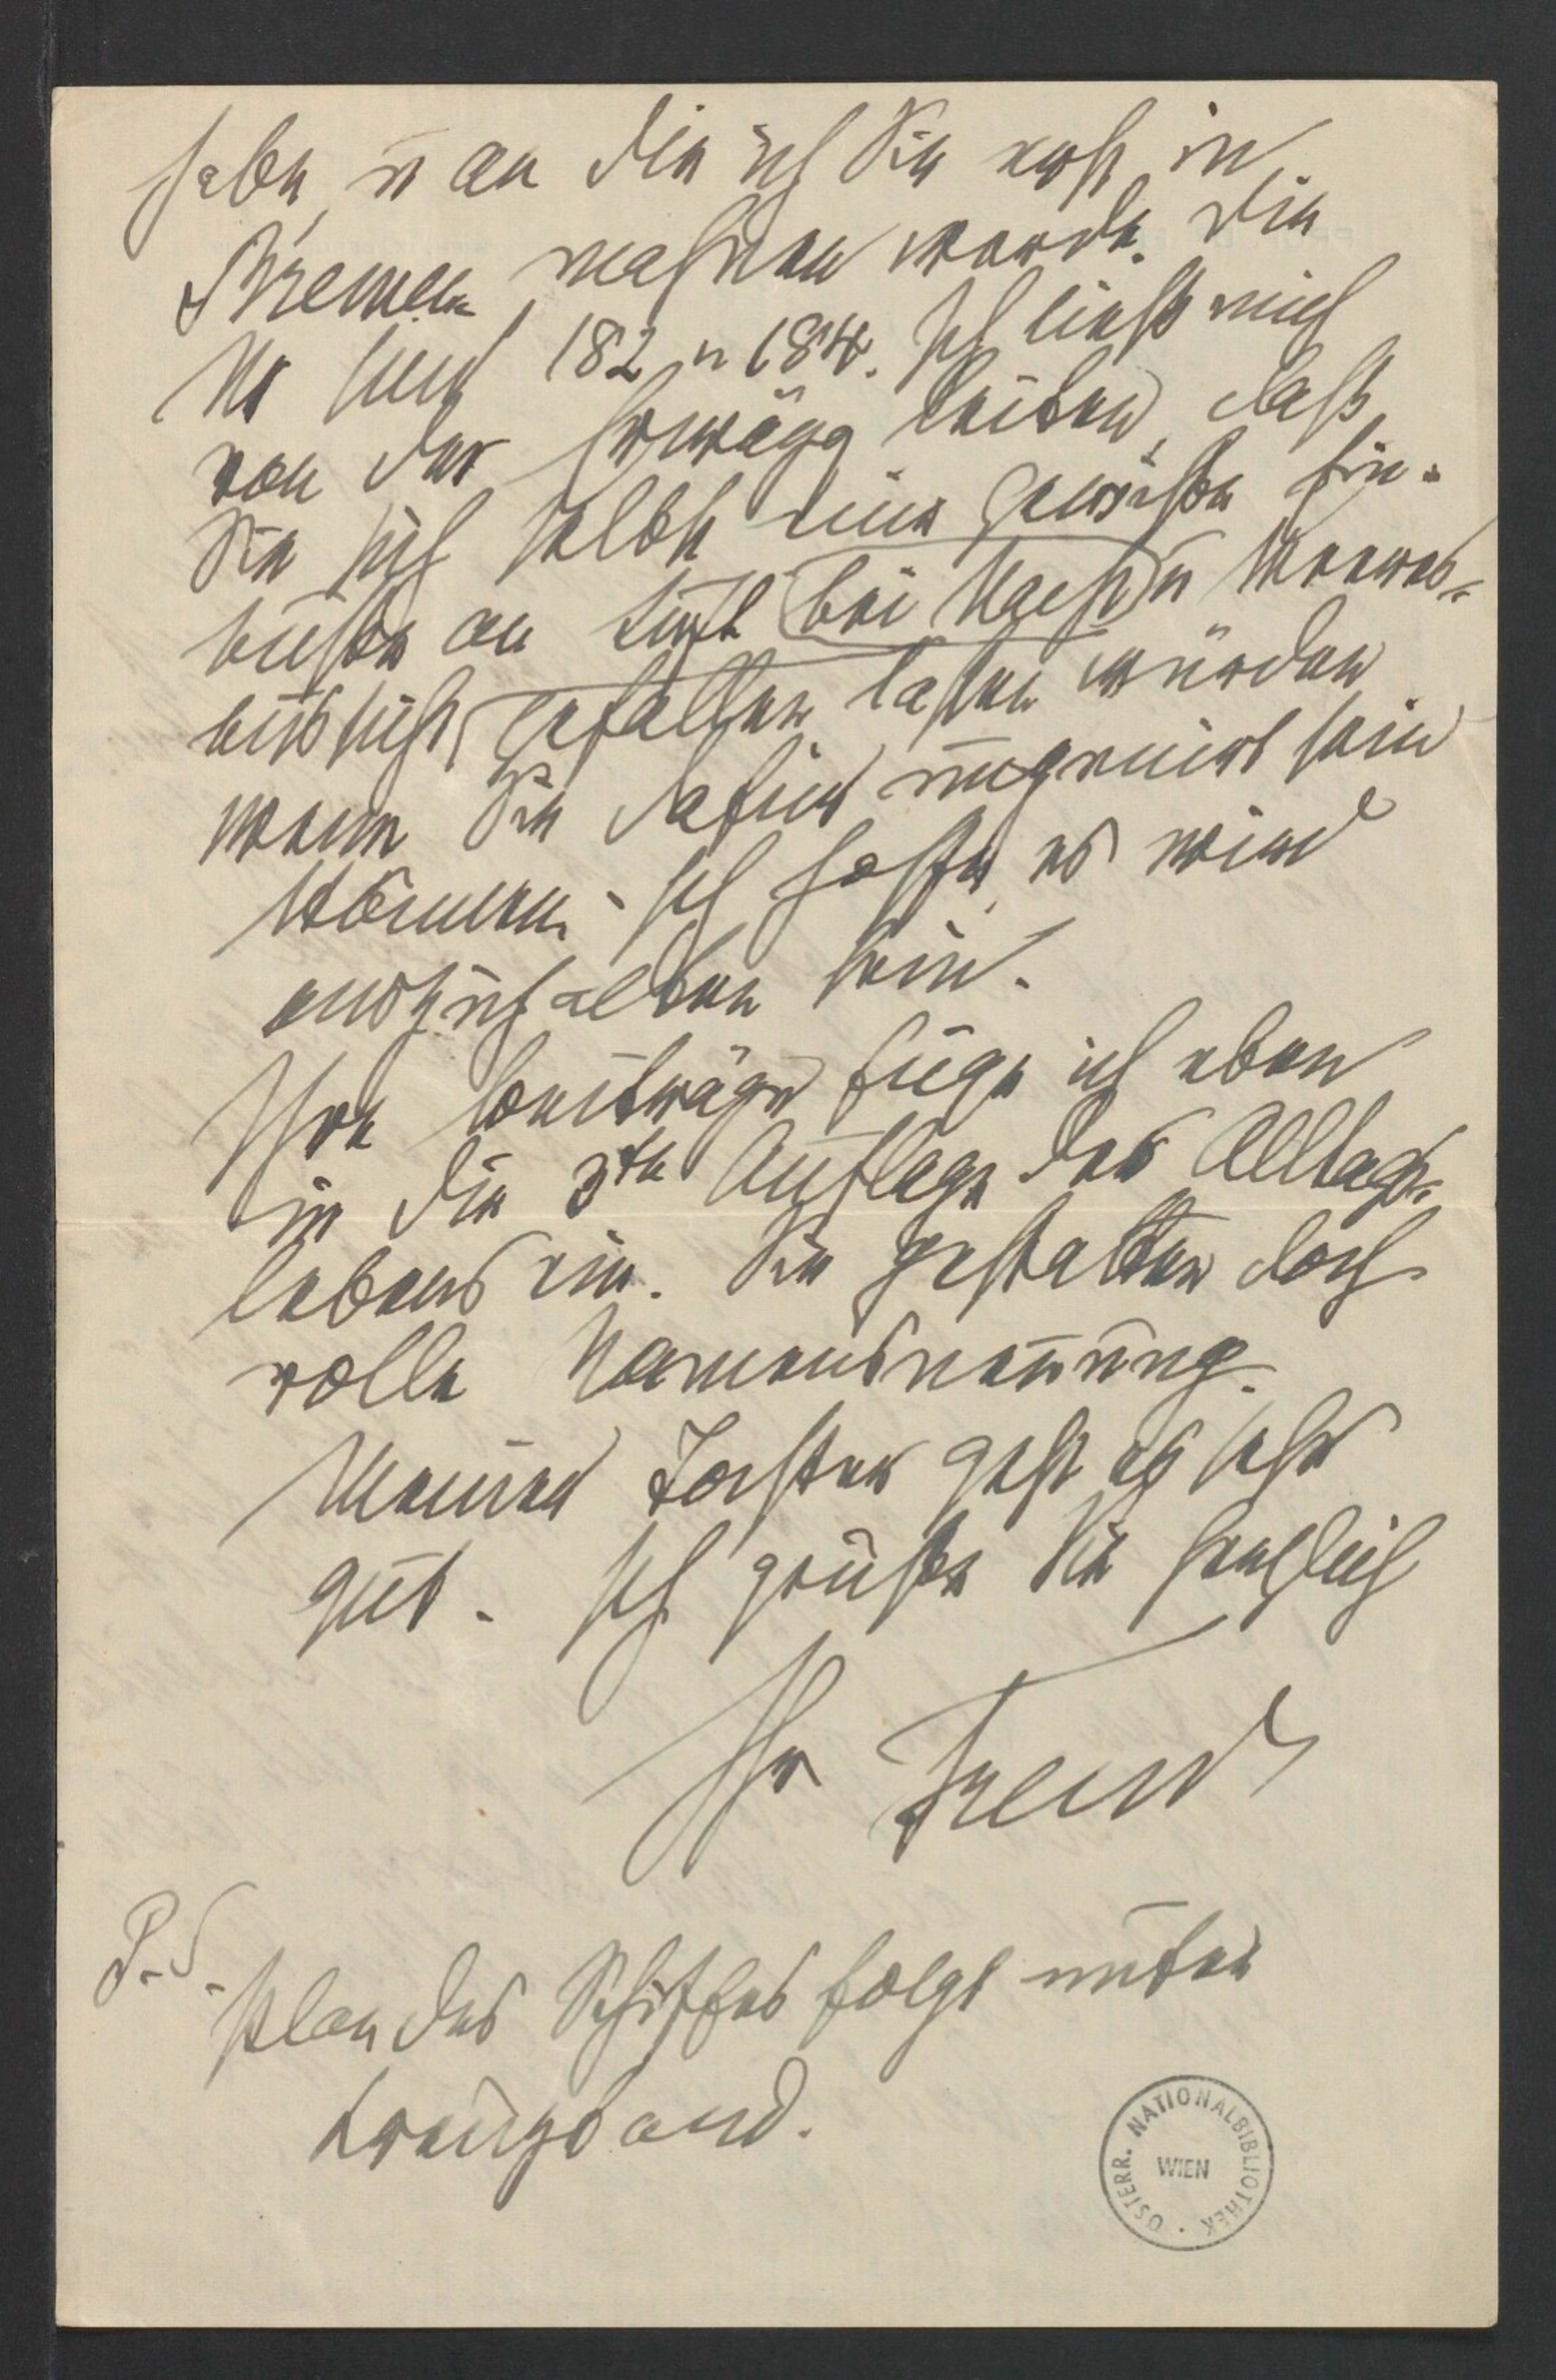 habe, u an die ich Sie erst in
Bremen mahnen werde. Die
No sind 182 u 184. Ich ließ mich
von der Erwägg leiten, daß
Sie sich selbst eine gewisse Ein-
buße an Luft bei Nacht u Meeres-
aussicht gefallen lassen würden
wenn Sie dafür ungenirt sein
können. Ich hoffe, es wird
auszuhalten sein.
Ihre Beiträge füge ich eben
in die 3te Auflage des Alltags-
lebens ein. Sie gestatten doch
volle Namensnennung.
Meiner Tochter geht es sehr
gut. Ich grüße Sie herzlich
Ihr Freud
P.S.
Plan des Schiffes folgt unter
Kreuzband.
ÖSTERR. NATIONALBIBLIOTHEK
WIEN